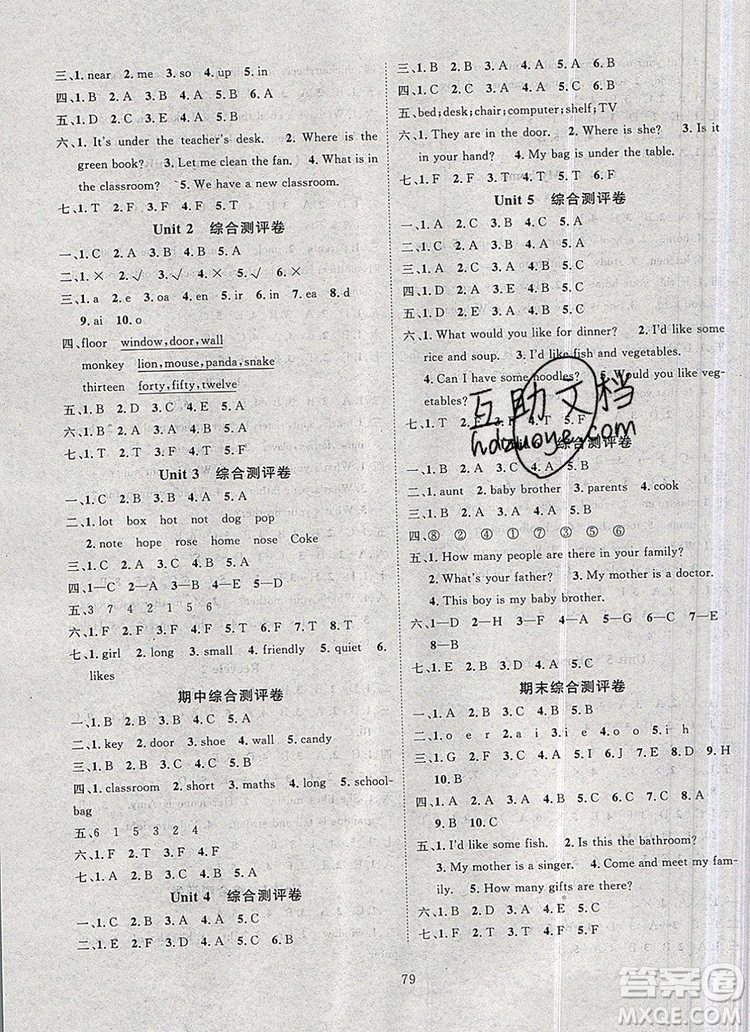 三、1. near　2. me　3. so　4. up　5. in
四、1. B　2. A　3. B　4. A　5. B
五、1. D　2. C　3. A　4. E　5. B
六、1. It's under the teacher's desk.　2. Where is the
green book?　3. Let me clean the fan.　4. What is in
the classroom?　5. We have a new classroom.
七、1. T　2. F　3. F　4. F　5. T
Unit 2　综合测评卷
一、1. C　2. A　3. B　4. B　5. A
二、1. ×　2. √　3. √　4. ×　5. √
三、1. a　2. e　3. oo　4. en　5. o　6. a　7. ir　8. d
9. ai　10. o
四、floor　window,door,wall
monkey　lion,mouse,panda,snake
thirteen　forty,fifty,twelve
五、1. B　2. D　3. C　4. E　5. A
六、1. B　2. A　3. B　4. A　5. A
七、1. T　2. F　3. F　4. T　5. F
Unit 3　综合测评卷
一、1. C　2. A　3. B　4. A　5. B
二、1. lot　box　hot　not　dog　pop
2. note　hope　rose　home　nose　Coke
三、1. A　2. B　3. C　4. C　5. A
四、1—C　2—A　3—E　4—B　5—D
五、3　7　4　2　1　5　6
六、1. F　2. T　3. F　4. T　5. F　6. T
七、1. girl　2. long　3. small　4. friendly　5. quiet　6.
likes
期中综合测评卷
一、1. A　2. B　3. B　4. C　5. A
二、1. key　2. door　3. shoe　4. wall　5. candy
三、1. B　2. C　3. A　4. C　5. A
四、1. classroom　2. short　3. maths　4. long　5. school-
bag
五、6　1　5　3　2　4
六、1. F　2. T　3. T　4. F　5. T
七、1. F　2. F　3. T　4. F　5. T
Unit 4　综合测评卷
一、1. C　2. B　3. A　4. A　5. C
二、1. A　2. C　3. A　4. A　5. C　6. B
三、1. B　2. B　3. A　4. B　5. C
四、1. C　2. B　3. B　4. A　5. A
五、bed;desk;chair;computer;shelf;TV
六、1. They are in the door.　2. Where is she?　3. Is it
in your hand?　4. My bag is under the table.
七、1. F　2. T　3. F　4. T　5. F
Unit 5　综合测评卷
一、1. A　2. C　3. B　4. C　5. A
三、1. C　2. A　3. A　4. B　5. C
四、1. D　2. E　3. A　4. C　5. B
六、1. What would you like for dinner?　2. I'd like some
rice and soup.　3. I'd like fish and vegetables.
4. Can I have some noodles?　5. Would you like veg-
etables?
互助文档
hdzuoye.com
综合测评卷
一、1. B　2. C　3. A　4. A　5. B
二、1. aunt　2. baby brother　3. parents　4. cook
三、1. B　2. A　3. A　4. C　5. A
四、⑧　②　④　①　⑦　③　⑤　⑥
五、1. How many people are there in your family?
2. What's your father?　3. My mother is a doctor.
4. This boy is my baby brother.
8—B
七、1. F　2. F　3. F　4. T　5. T
期末综合测评卷
一、1. A　2. B　3. B　4. C　5. A
三、1. G　2. F　3. J　4. I　5. A　6. C　7. E　8. D　9. H
10. B
四、1. A　2. C　3. B　4. C　5. C　6. A　7. C　8. A
五、1. I'd like some fish.　2. Is this the bathroom?
3. My mother is a singer.　4. Come and meet my fam-
ily.　5. How many gifts are there?
六、1. B　2. C　3. D　4. E　5. A
七、1. F　2. T　3. F　4. T　5. F
79
答案圈
MXQE.COM